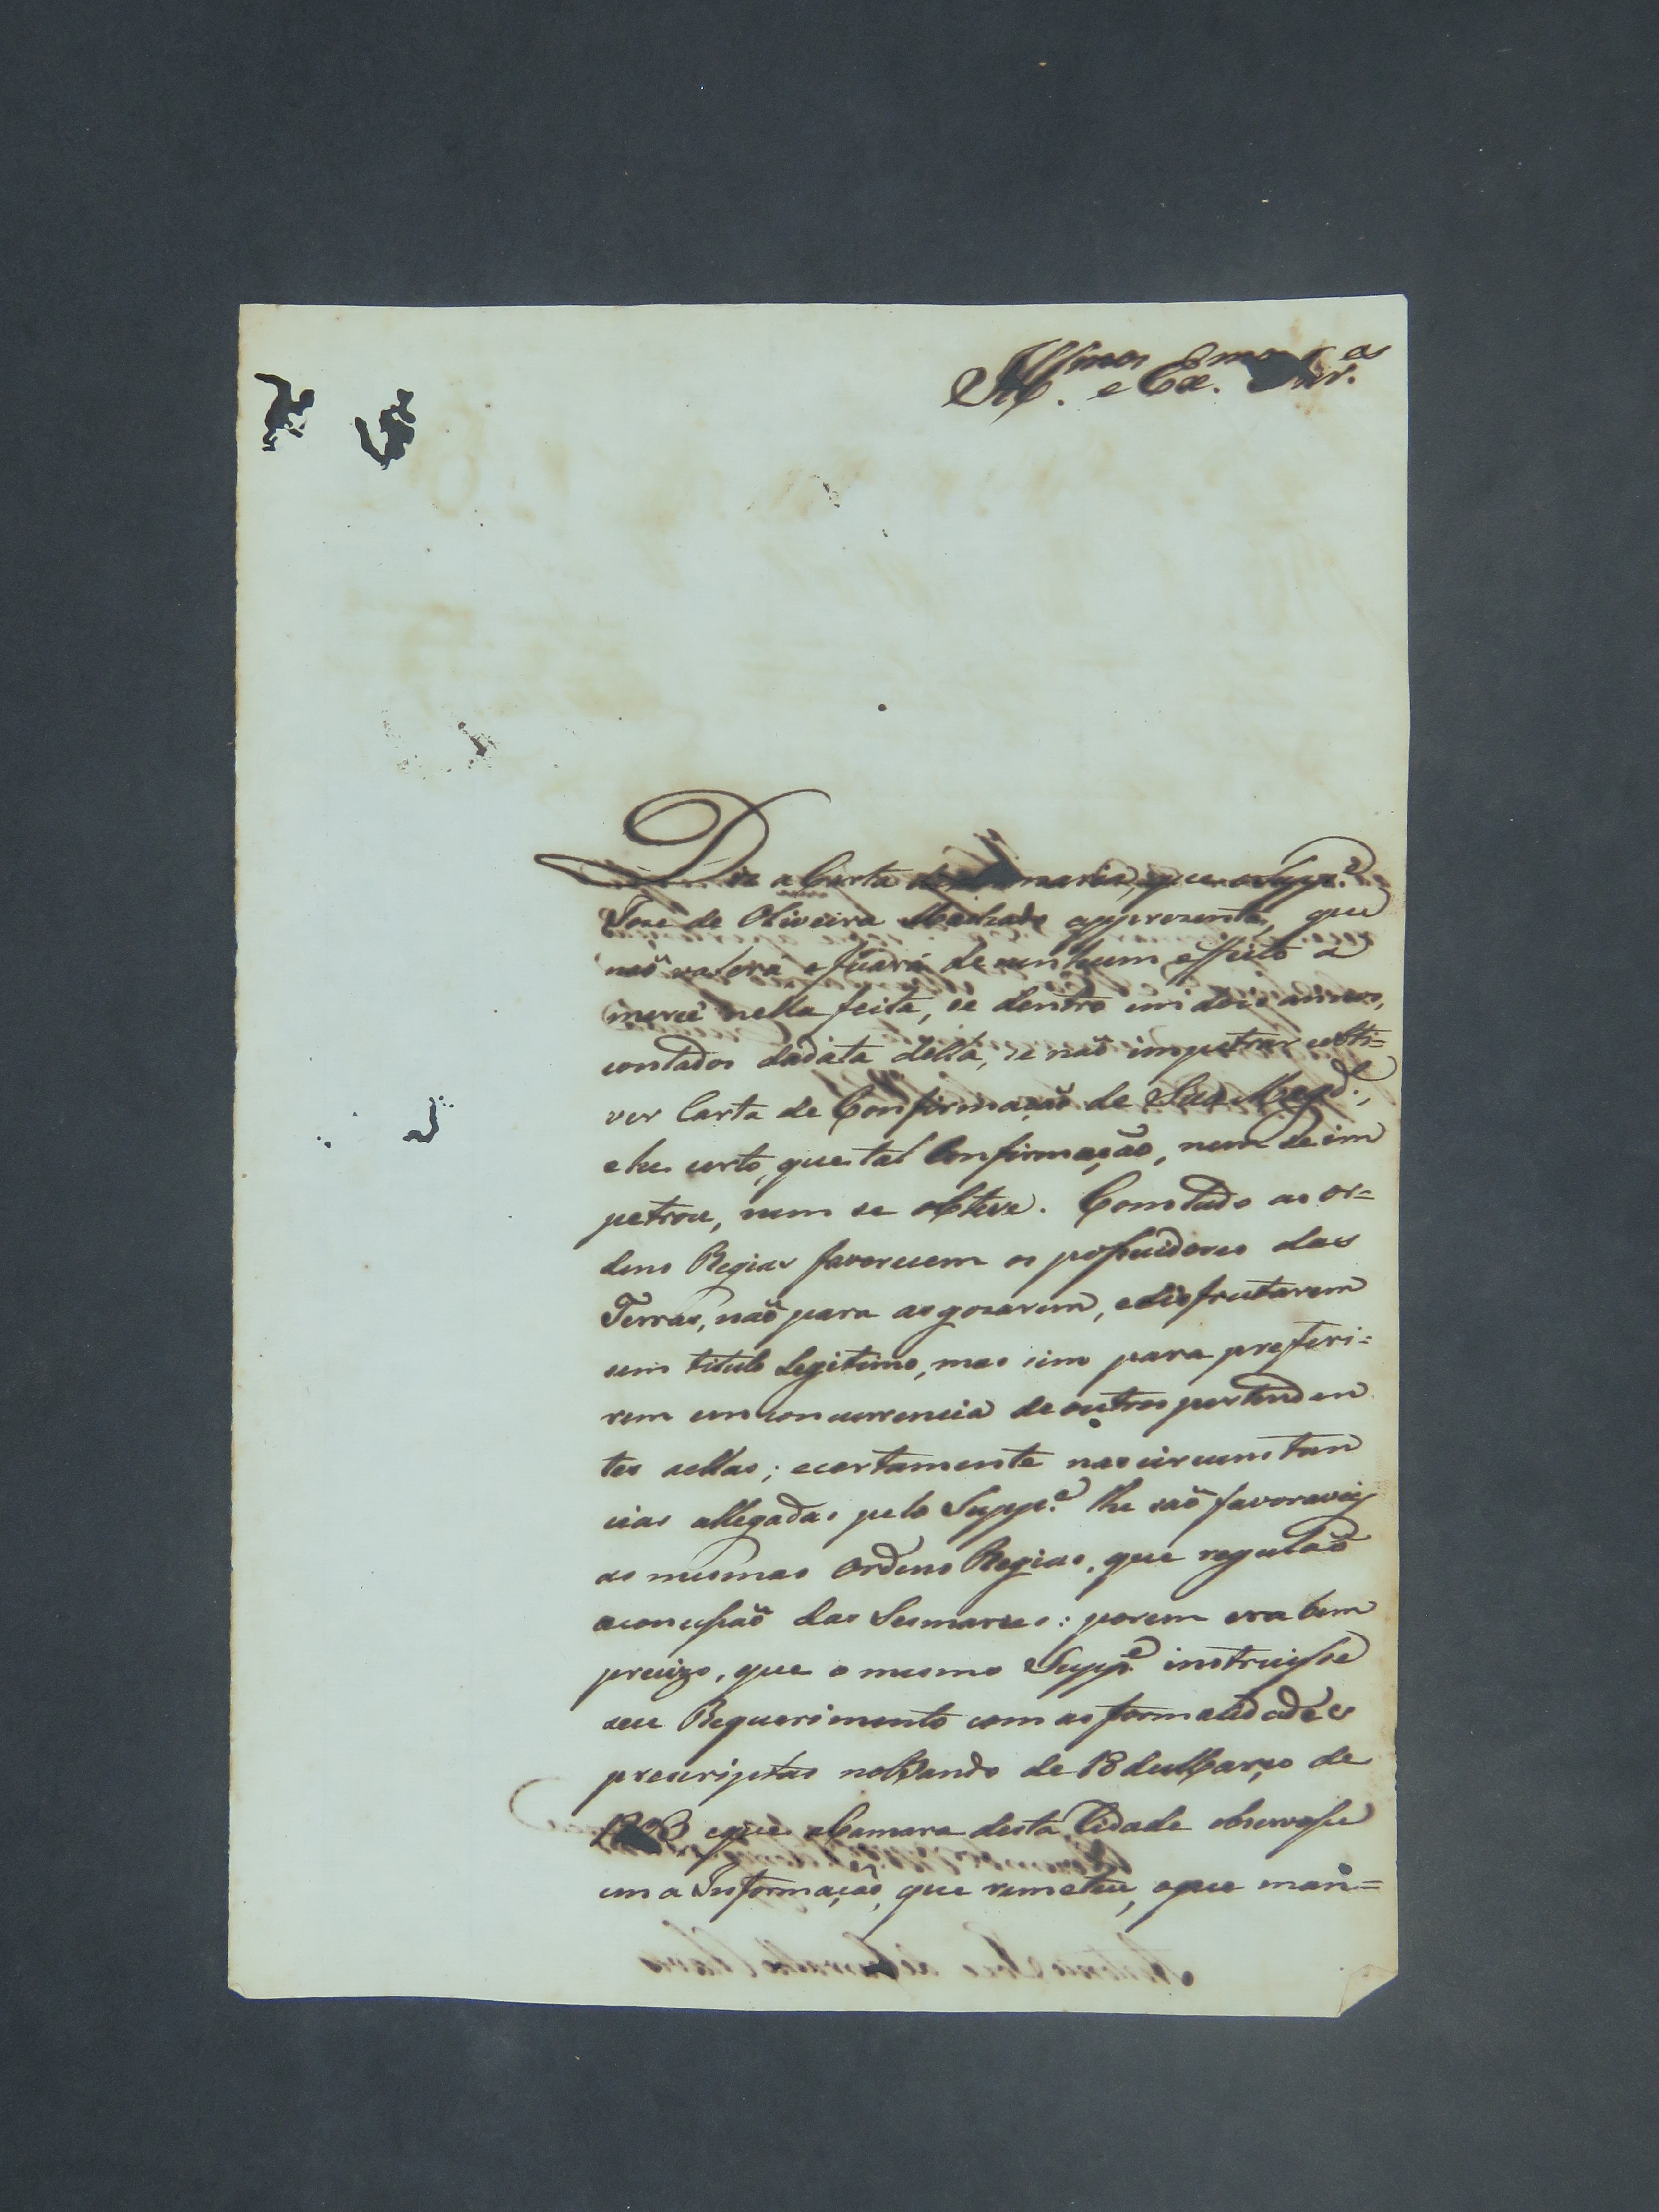 Ill.mos e Ex.mos Snr.es
Diz a Carta de maria, que o Supp.e
Joze de Oliveira Machado apprezenta, que
naõ valerá e ficará de nenhum effeito a
mercê nella feita, se dentro em dois annos,
contados da data della, se naõ impetrar e obti=
ver Carta de Confirmaçaõ de Sua Magd.e,
e he certo, que tal Confirmação, nem se im
petrou, nem se obteve. Comtudo as or=
dens Regias favorecem os possuidores das
Terras, naõ para as gozarem, e disfrutarem
sem titulo Legitimo, mas sim para preferi=
rem em concurrencia de outros pertenden
tes aellas; e certamente nas circunstan
cias allegadas pelo Supp.e lhe saõ favoraveis
as mesmas Ordens Regias, que regulaõ
a concessaõ das Sesmarias: porem era bem
precizo, que o mesmo Supp.e instruisse
seu Requerimento com as formalidades
prescriptas no Bando de 18 de Março de
e que a Camara desta Cidade observasse
em a Informaçaõ, que remeteu, o que man=